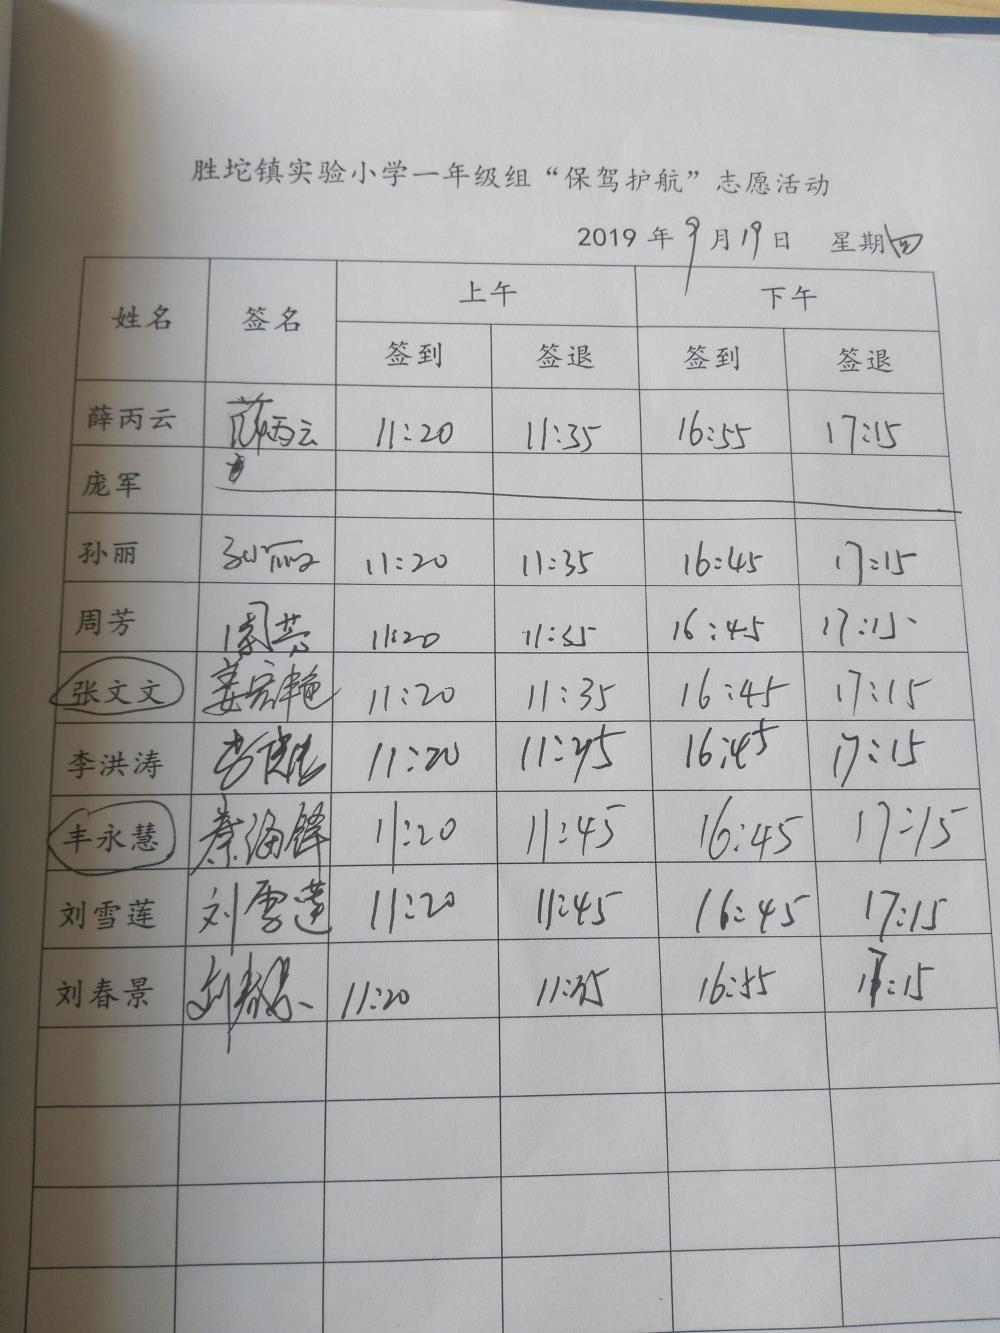 胜坨镇实验小学一年级组“保驾护航”志愿活动
2019 年 9 月 19 日 星期四
姓名 签名 上午 下午
签到 签退 签到 签退
薛丙云 薛丙云 11:20 11:35 16:55 17:15
庞军
孙丽 孙丽 11:20 11:35 16:45 17:15
周芳 周芳 11:20 11:35 16:45 17:15
张文文 11:20 11:35 16:45 17:15
李洪涛 11:20 11:45 16:45 17:15
丰永慧 11:20 11:45 16:45 17:15
刘雪莲 刘雪莲 11:20 11:45 16:45 17:15
刘春景 刘春景 11:20 11:35 16:55 17:15